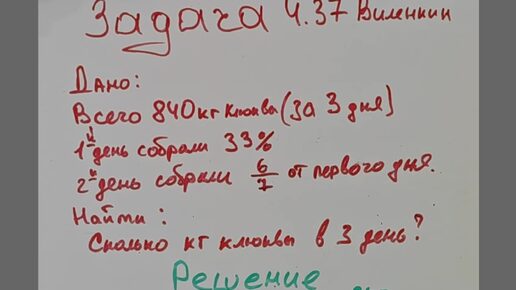 Задача 4.37 Виленкин
Дано:
Всего 840 кг клюквы (за 3 дня)
1й день собрали 33%
2й день собрали 6/7 от первого дня.
Найти:
Сколько кг клюквы в 3 день?
Решение